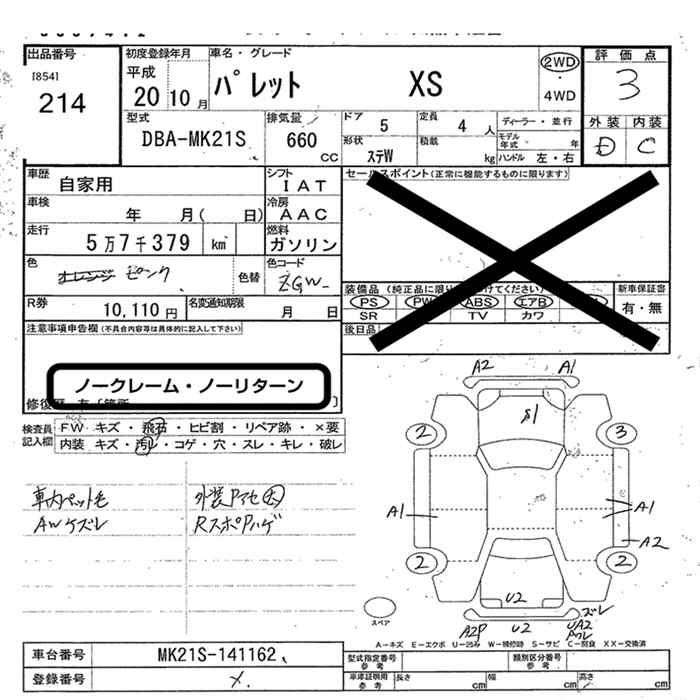 出品番号
[854]
214
初度登録年月
平成
20 10 月
車名・グレード
パレット XS
2WD
・
4WD
評価点
3
外装 内装
D C
型式
DBA-MK21S
排気量
660
cc
ドア
5
定員
4 人
形状
ステW
積載
kg
ディーラー・並行
モデル年式 年
ハンドル 左・右
車歴
自家用
シフト
IAT
車検
年 月( 日)
冷房
AAC
走行
5万7千379 km
燃料
ガソリン
色
オレンジ ピンク
色替
色コード
ZGW
R券
10,110 円
名変通知期限
月 日
セールスポイント(正常に機能するものに限ります)
装備品 (純正品に限り てください)
PS PW ABS エアB
SR TV カワ
新車保証書
有・無
後日品
注意事項申告欄(不具合内容等は具体的に記入して下さい)
ノークレーム・ノーリターン
修復歴
検査員記入欄
FW キズ・飛石・ヒビ割・リペア跡・×要
内装 キズ・汚レ・コゲ・穴・スレ・キレ・破レ
車内ペット毛
AWケズレ
外装
A2 A1
S1
2 3
A1 A1
A2
2 2
U2
ズレ
A2P U2 UA2
スペア
A-キズ E-エクボ U-凹み W-補修跡 S-サビ C-腐食 XX-交換済
車台番号
MK21S-141162
登録番号
型式指定番号
参考
類別区分番号
参考
車庫証明用
参考
長さ cm
幅 cm
高さ cm